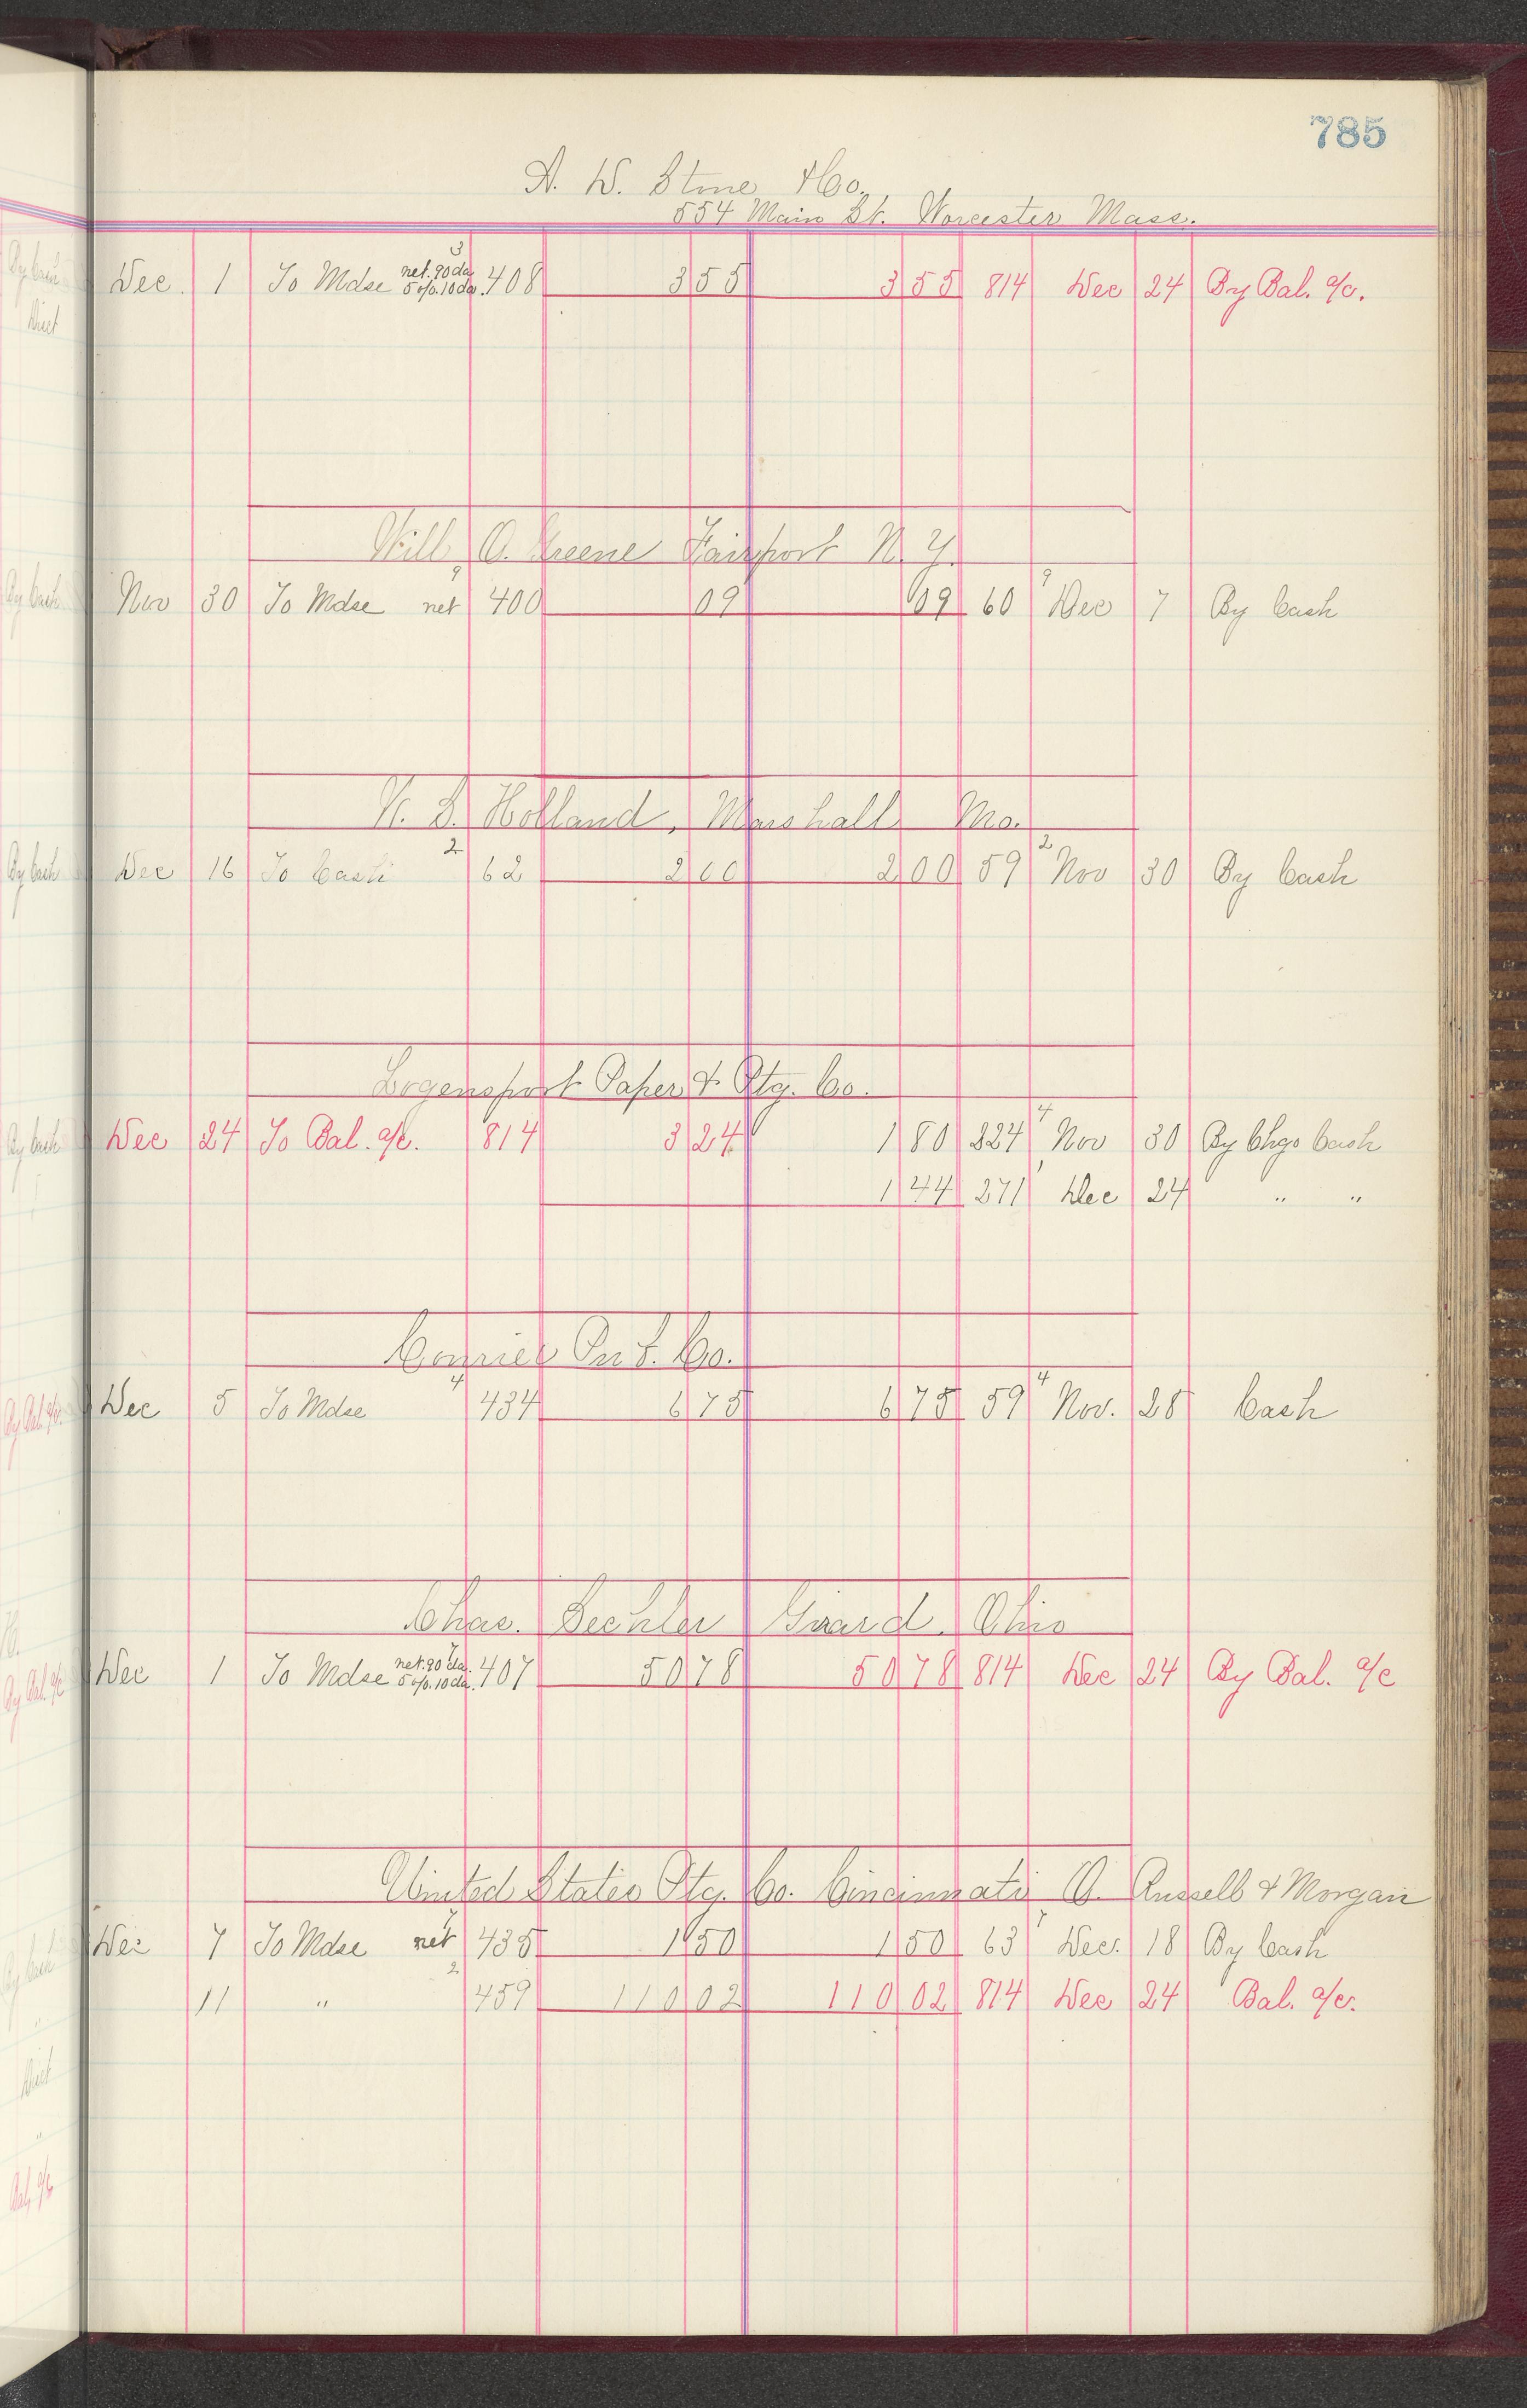 785
A. W. Stone & Co.
554 Main St. Worcester Mass.
3
Dec. 1 To Mdse net. 90 da 5 o/o. 10 da. 408 3 55 3 55 814 Dec 24 By Bal. a/c.
Will O. Greene Fairport N. Y.
9 9
Nov 30 To Mdse net 400 09 09 60 Dec 7 By Cash
S. Holland, Marshall Mo.
2 2
Dec 16 To Cash 62 2 00 2 00 59 Nov 30 By Cash
Logensport Paper & Ptg. Co.
4
Dec 24 To Bal. a/c. 814 3 24 1 80 224 Nov 30 By Chgo Cash
1 44 271 Dec 24 " "
Courier Co.
4 4
Dec 5 To Mdse 434 6 75 6 75 59 Nov. 28 Cash
Chas. Sechler Girard. Ohio
7
Dec 1 To Mdse net. 90 da. 5 o/o. 10 da. 407 50 78 50 78 814 Dec 24 By Bal. a/c
United States Ptg. Co. Cincinnati O. Russell & Morgan
7 7
Dec 7 To Mdse net 435 1 50 1 50 63 Dec. 18 By Cash
2
11 " 459 110 02 110 02 814 Dec 24 Bal. a/c.